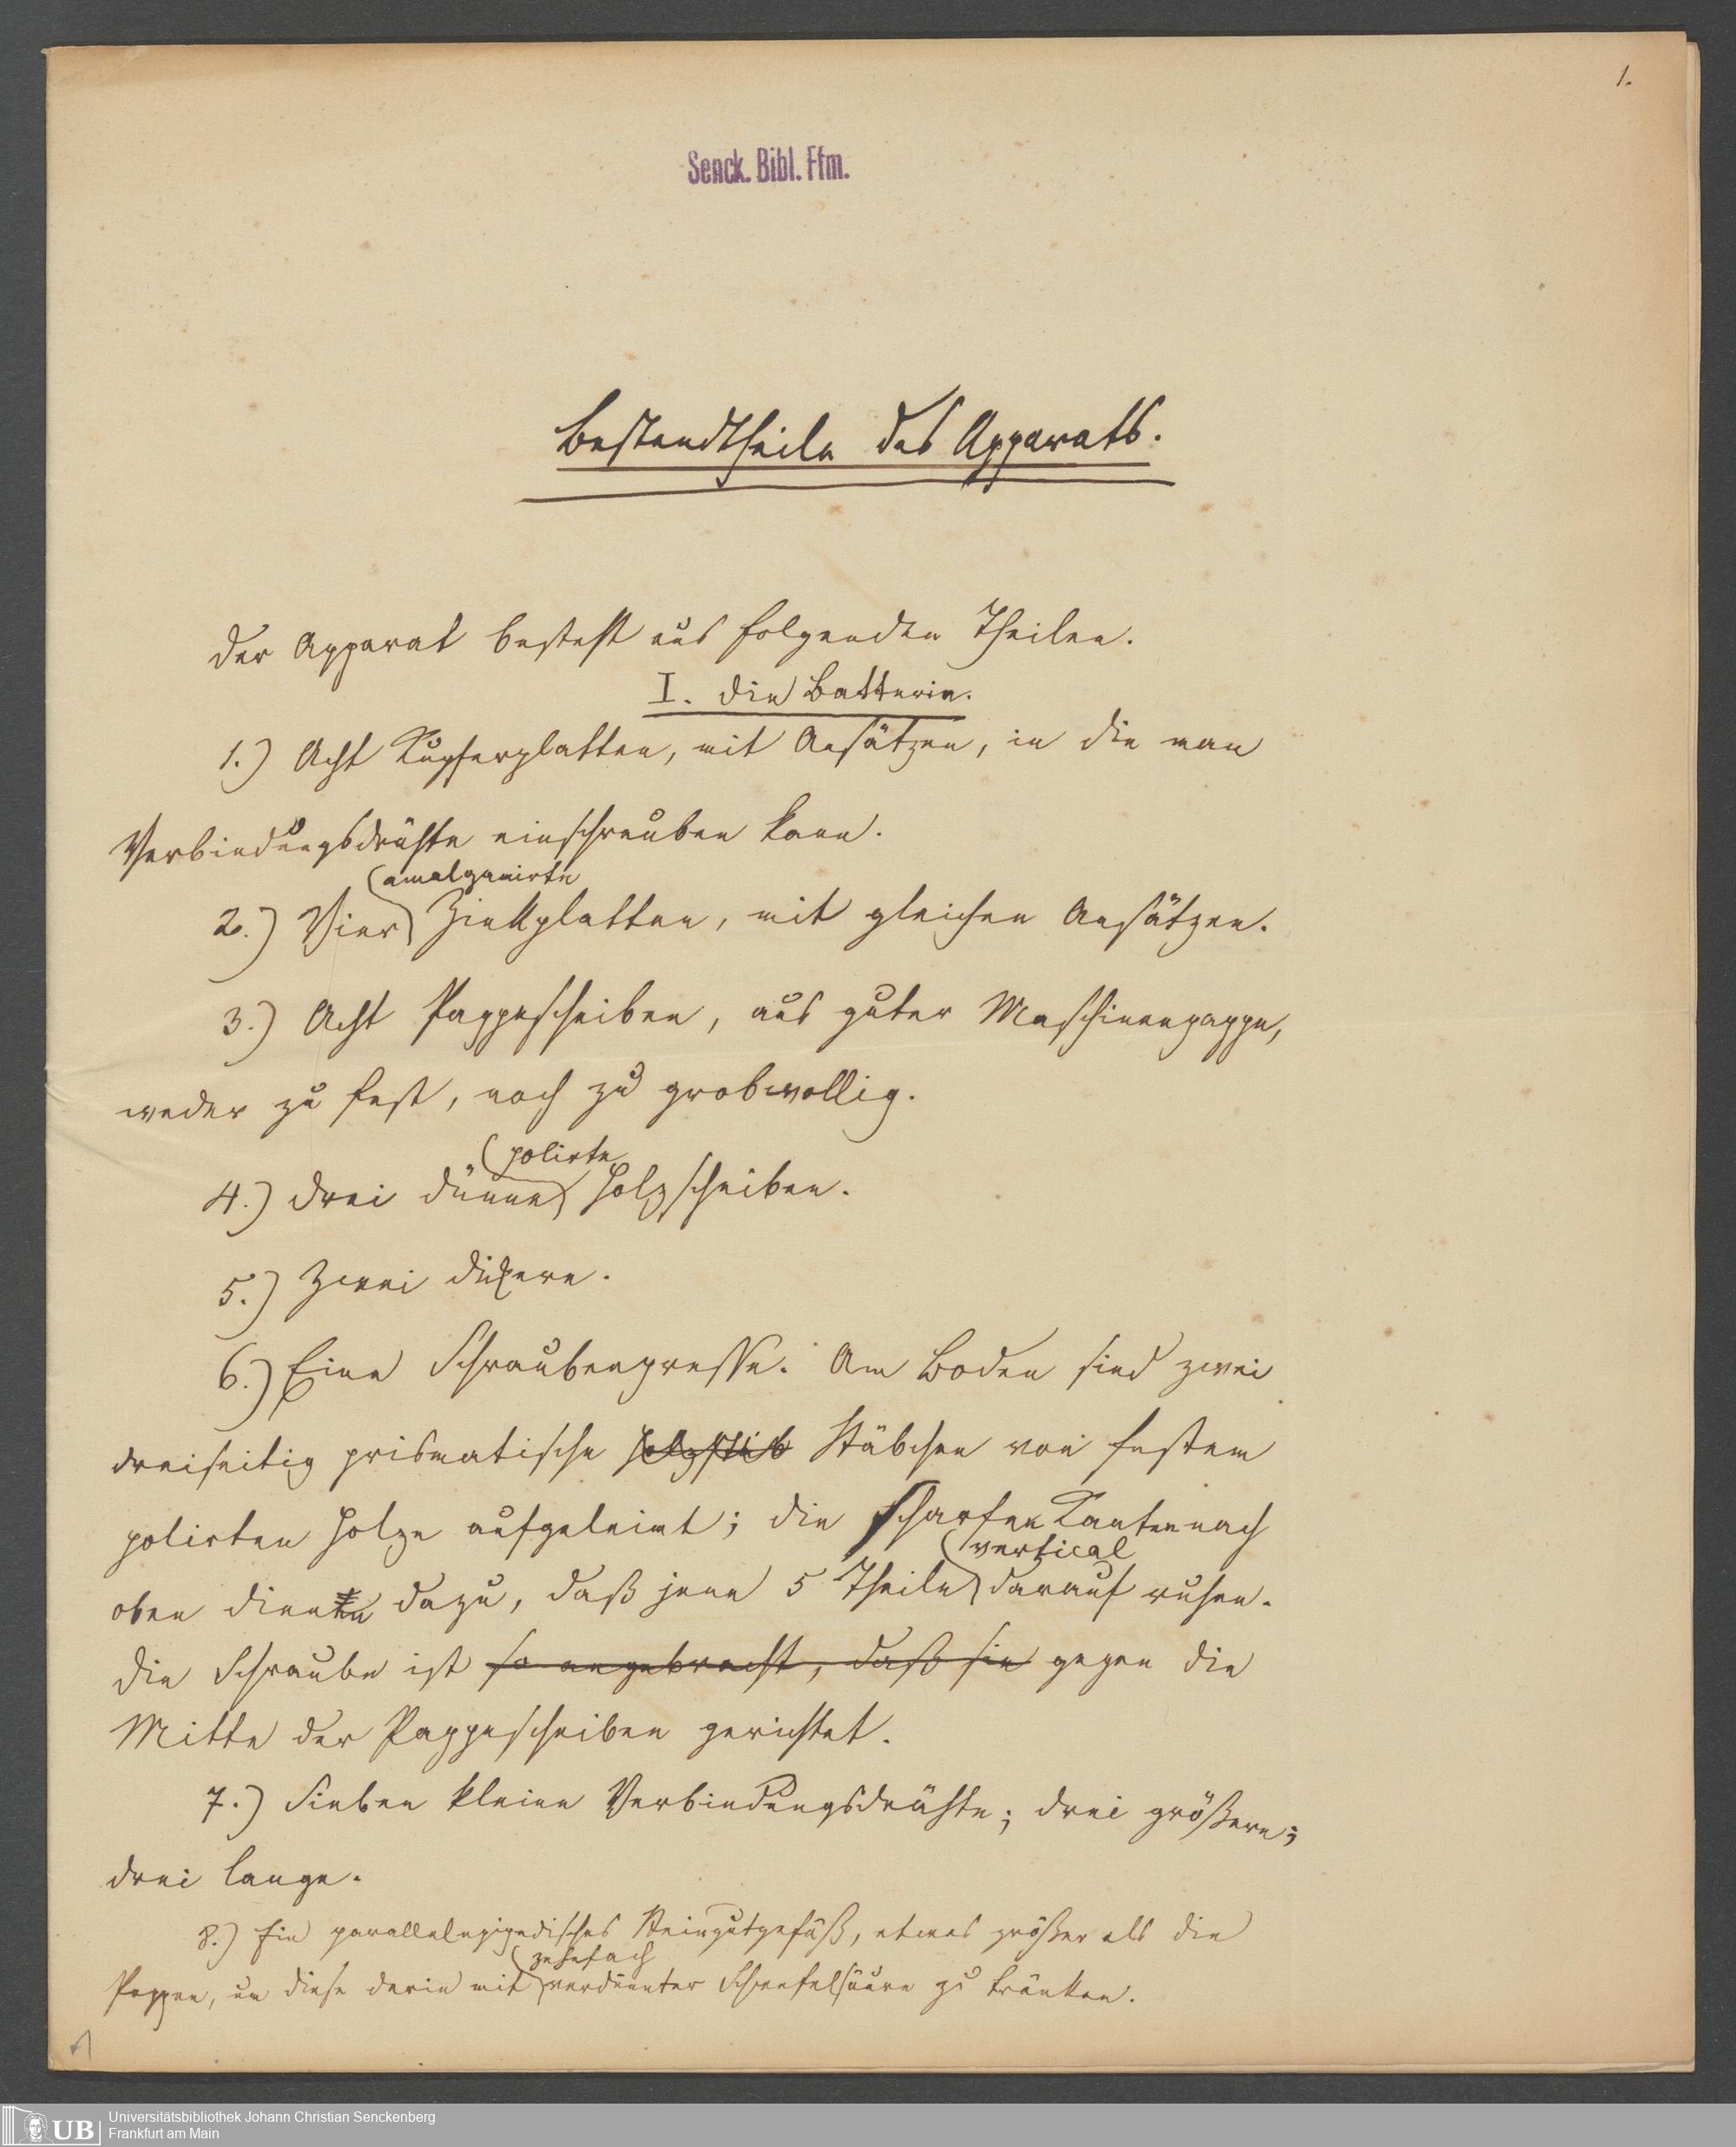 1.
Senck. Bibl. Ffm.
Bestandtheile des Apparats.
Der Apparat besteht aus folgenden Theilen.
I. Die Batterie.
1.) Acht Kupferplatten, mit Ansätzen, in die man
Verbindungsdrähte einschrauben kann.
amalgamirte
2.) Vier Zinkplatten, mit gleichen Ansätzen.
3.) Acht Pappescheiben, aus guter Maschinenpappe,
weder zu fest, noch zu grobwollig.
polirte
4.) Drei dünne Holzscheiben.
5.) Zwei dickere.
6.) Eine Schraubenpresse. Am Boden sind zwei
dreiseitig prismatische Holzstäb Stäbchen von festem
polirten Holze aufgeleimt; die scharfen Kanten nach
vertical
oben dienen dazu, daß jene 5 Theile darauf ruhen.
Die Schraube ist so angebracht, daß sie gegen die
Mitte der Pappescheiben gerichtet.
7.) Sieben kleine Verbindungsdrähte; drei größere;
drei lange.
8.) Ein parallelepipedisches Steingutgefäß, etwas größer als die
zehnfach
Pappen, um diese darin mit verdünnter Schwefelsäure zu tränken.
UB
Universitätsbibliothek Johann Christian Senckenberg
Frankfurt am Main